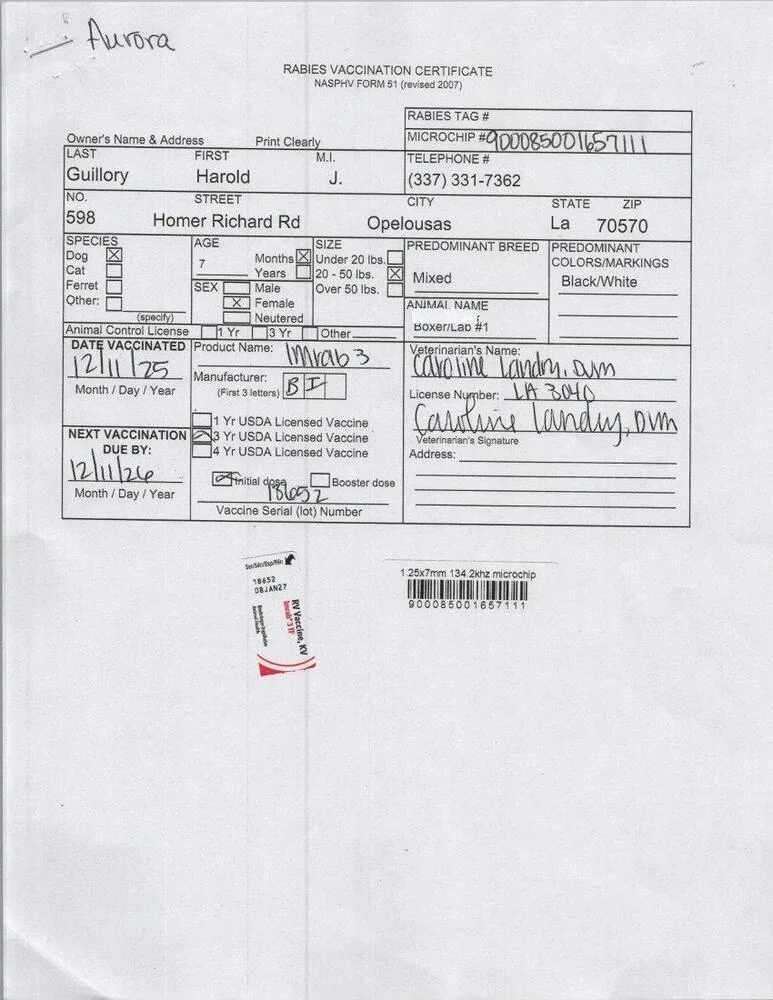 Aurora
RABIES VACCINATION CERTIFICATE
NASPHV FORM 51 (revised 2007)
RABIES TAG #
Owner's Name & Address Print Clearly
MICROCHIP # 900085001657111
LAST FIRST M.I. TELEPHONE #
Guillory Harold J. (337) 331-7362
NO. STREET CITY STATE ZIP
598 Homer Richard Rd Opelousas La 70570
SPECIES AGE SIZE PREDOMINANT BREED PREDOMINANT
Dog X Months X Under 20 lbs. COLORS/MARKINGS
7
Cat Years 20 - 50 lbs. X Mixed Black/White
Ferret SEX Male Over 50 lbs.
Other: X Female ANIMAL NAME
(specify) Neutered Boxer/Lab #1
Animal Control License 1 Yr 3 Yr Other
DATE VACCINATED Product Name: Imrab 3 Veterinarian's Name:
12/11/25 Caroline Landry, DVM
Manufacturer: B I
Month / Day / Year (First 3 letters) License Number: LA 3040
1 Yr USDA Licensed Vaccine Caroline Landry, DVM
NEXT VACCINATION 3 Yr USDA Licensed Vaccine Veterinarian's Signature
DUE BY: 4 Yr USDA Licensed Vaccine Address:
12/11/26
Initial dose Booster dose
Month / Day / Year 18652
Vaccine Serial (lot) Number
18652
08JAN27
RV Vaccine, KV
Imrab® 3 TF
1.25x7mm 134.2khz microchip
900085001657111